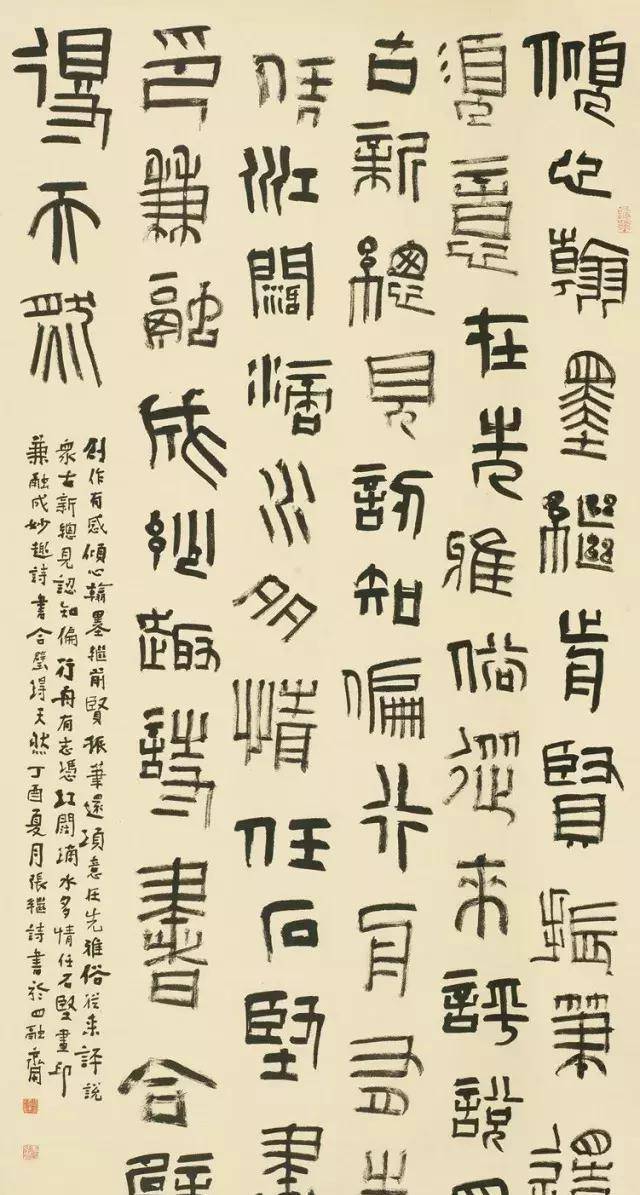 傾心翰墨繼前賢振筆還
須意在先雅俗從來評說眾
古新總見認知偏行舟有志
凭江闊滴水多情任石堅畫
印兼融成妙趣詩書合璧
得天然
創作有感傾心翰墨繼前賢振筆還須意在先雅俗從來評說
眾古新總見認知偏行舟有志憑江闊滴水多情任石堅畫印
兼融成妙趣詩書合璧得天然丁酉夏月張繼詩書於四融齋